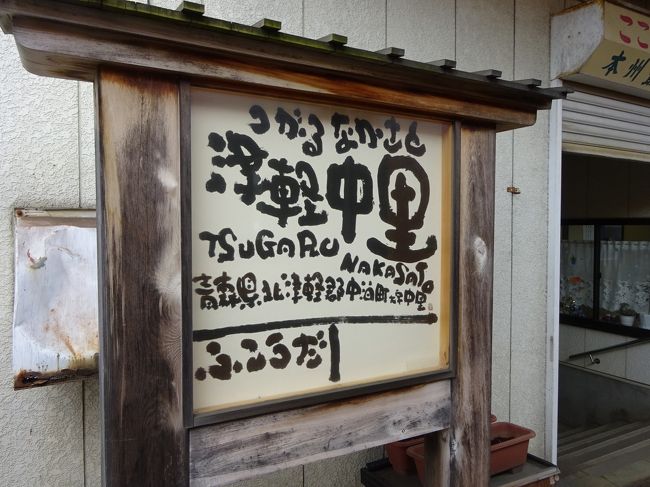 つがるなかさと
津軽中里
TSUGARU
NAKASATO
青森県北津軽郡中泊町大字中里
ふこうだ
ここ
本州